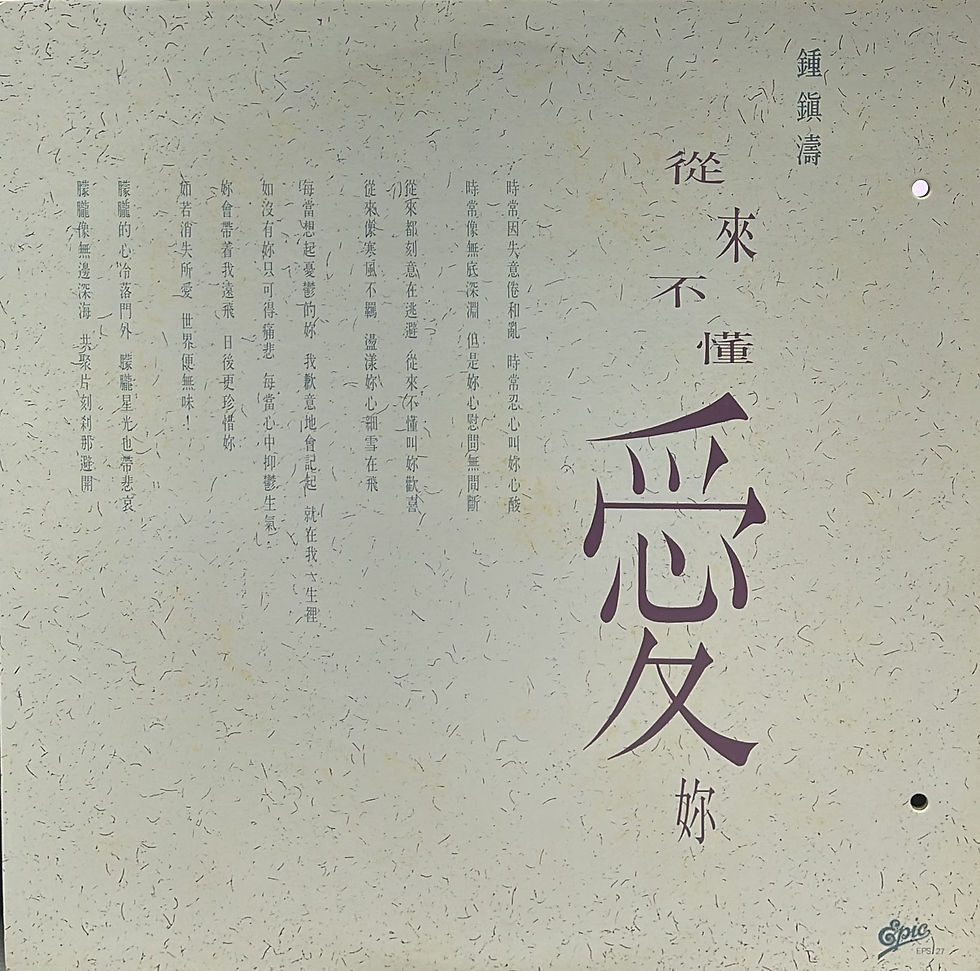 鍾鎮濤
從來不懂愛妳
時常因失意倦和亂 時常忍心叫妳心酸
時常像無底深淵 但是妳心慰問無間斷
從來都刻意在逃避 從來不懂叫妳歡喜
從來像寒風不羈 盪漾妳心細雪在飛
每當想起憂鬱的妳 我歉意地會記起 就在我一生裡
如沒有妳只可得痛悲 每當心中抑鬱生氣
妳會帶着我遠飛 日後更珍惜妳
如若消失所愛 世界便無味！
朦朧的心冷落門外 朦朧星光也帶悲哀
朦朧像無邊深海 共聚片刻剎那避開
Epic
EPS 27